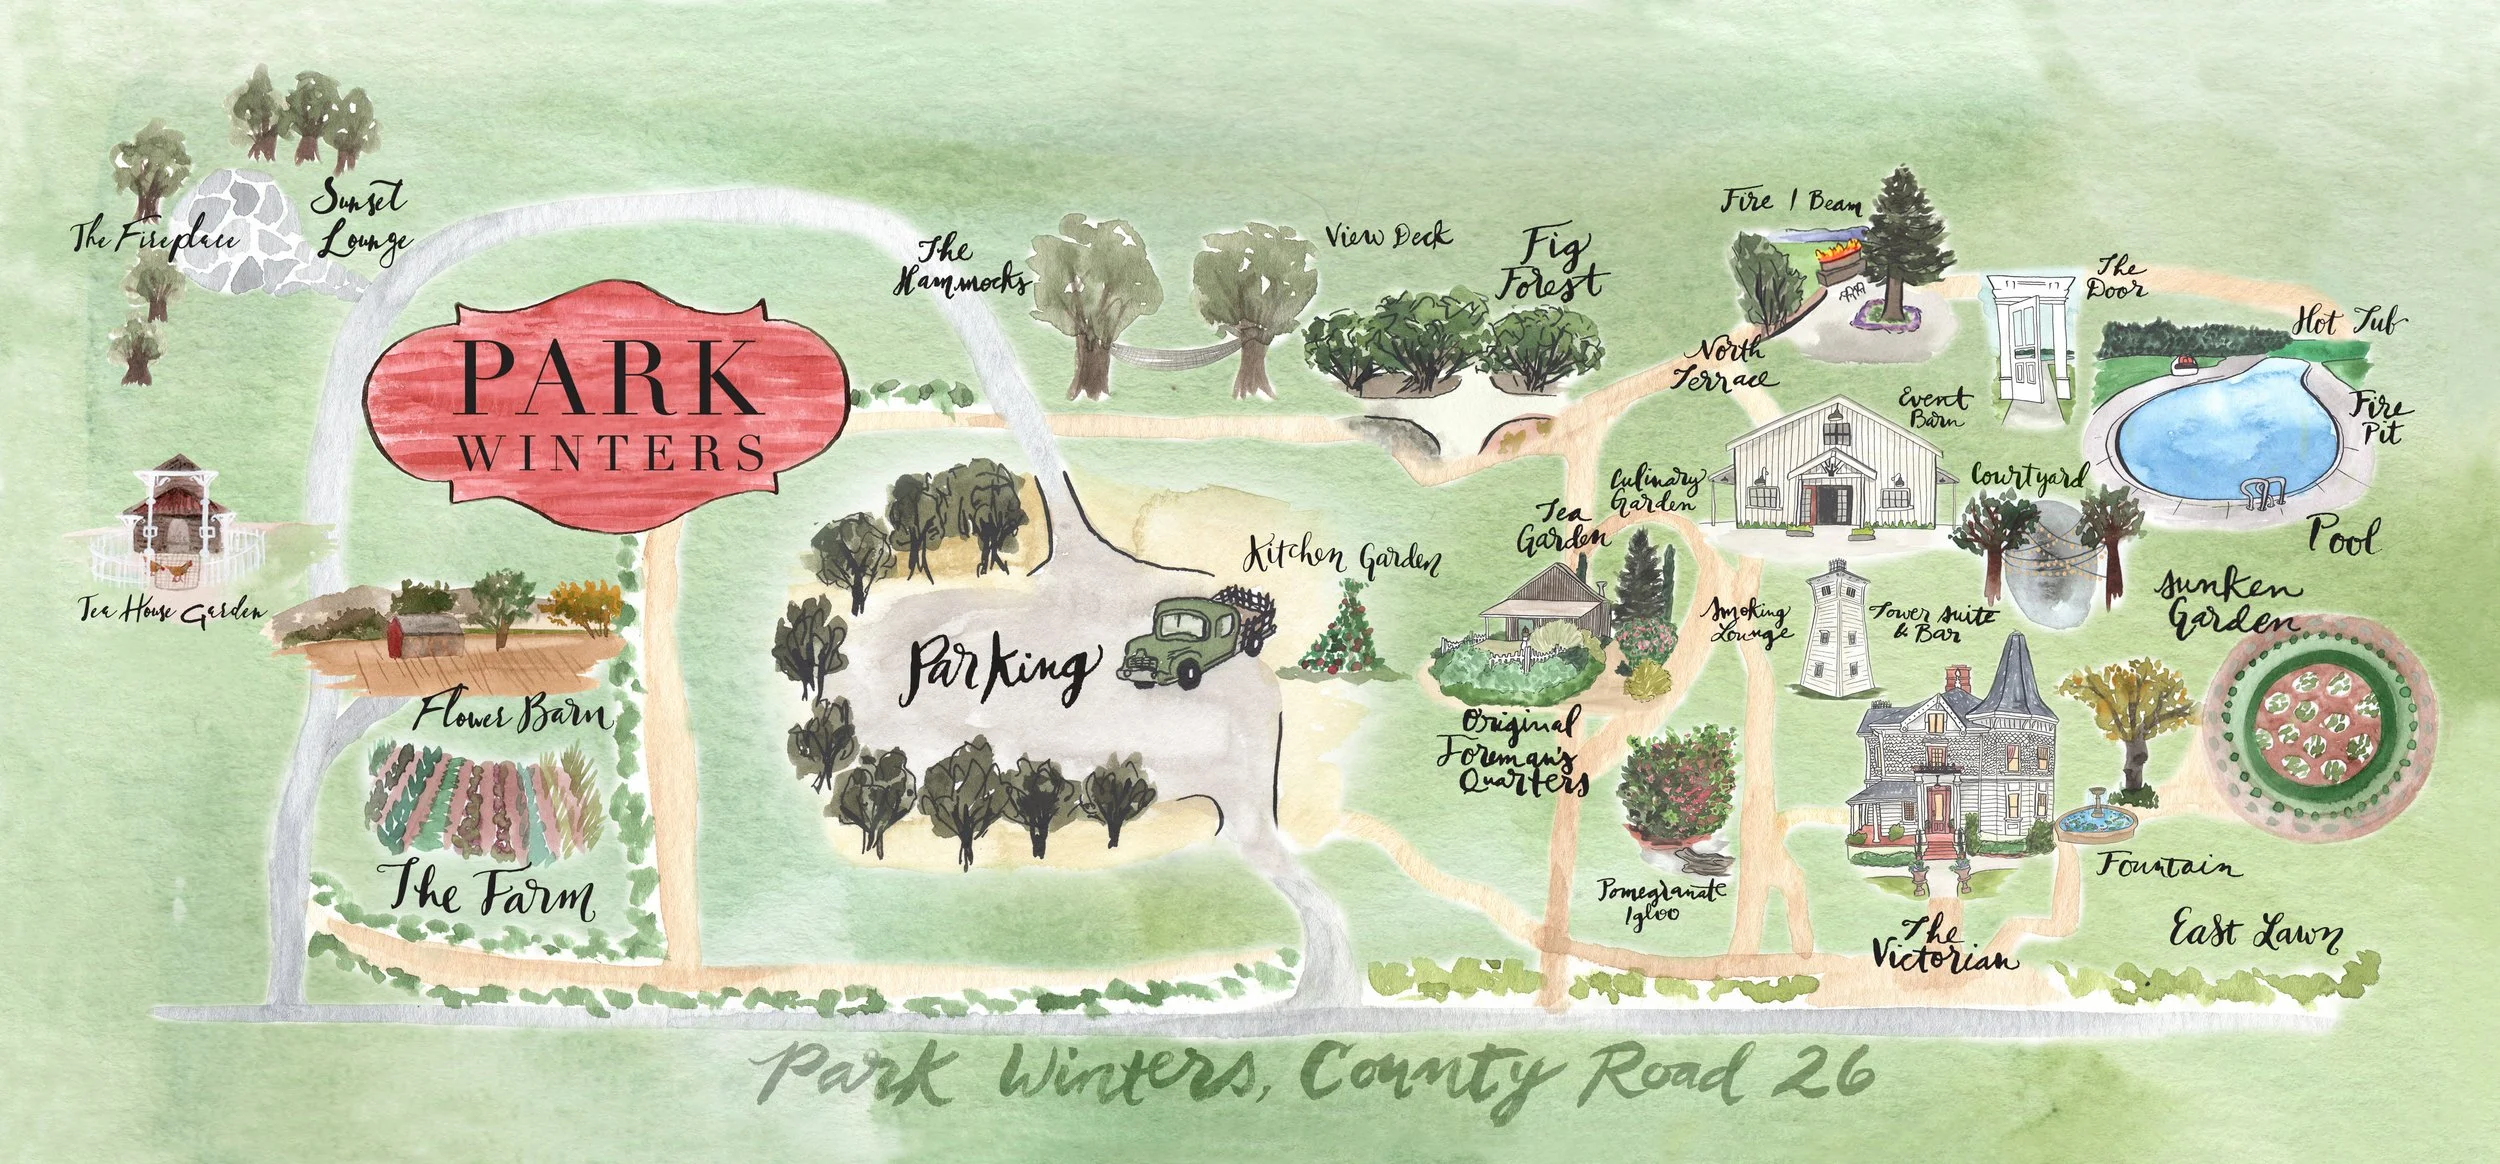 Sunset
Lounge
The Fireplace
PARK
WINTERS
The
Hammocks
View Deck
Fig
Forest
Fire / Beam
The
Door
Hot Tub
North
Terrace
Event
Barn
Fire
Pit
Culinary
Garden
Courtyard
Tea
Garden
Pool
Kitchen Garden
Tea House Garden
Smoking
Lounge
Tower Suite
& Bar
Sunken
Garden
Flower Barn
Parking
Original
Foreman's
Quarters
The Farm
Pomegranate
Igloo
Fountain
The
Victorian
East Lawn
Park Winters, County Road 26